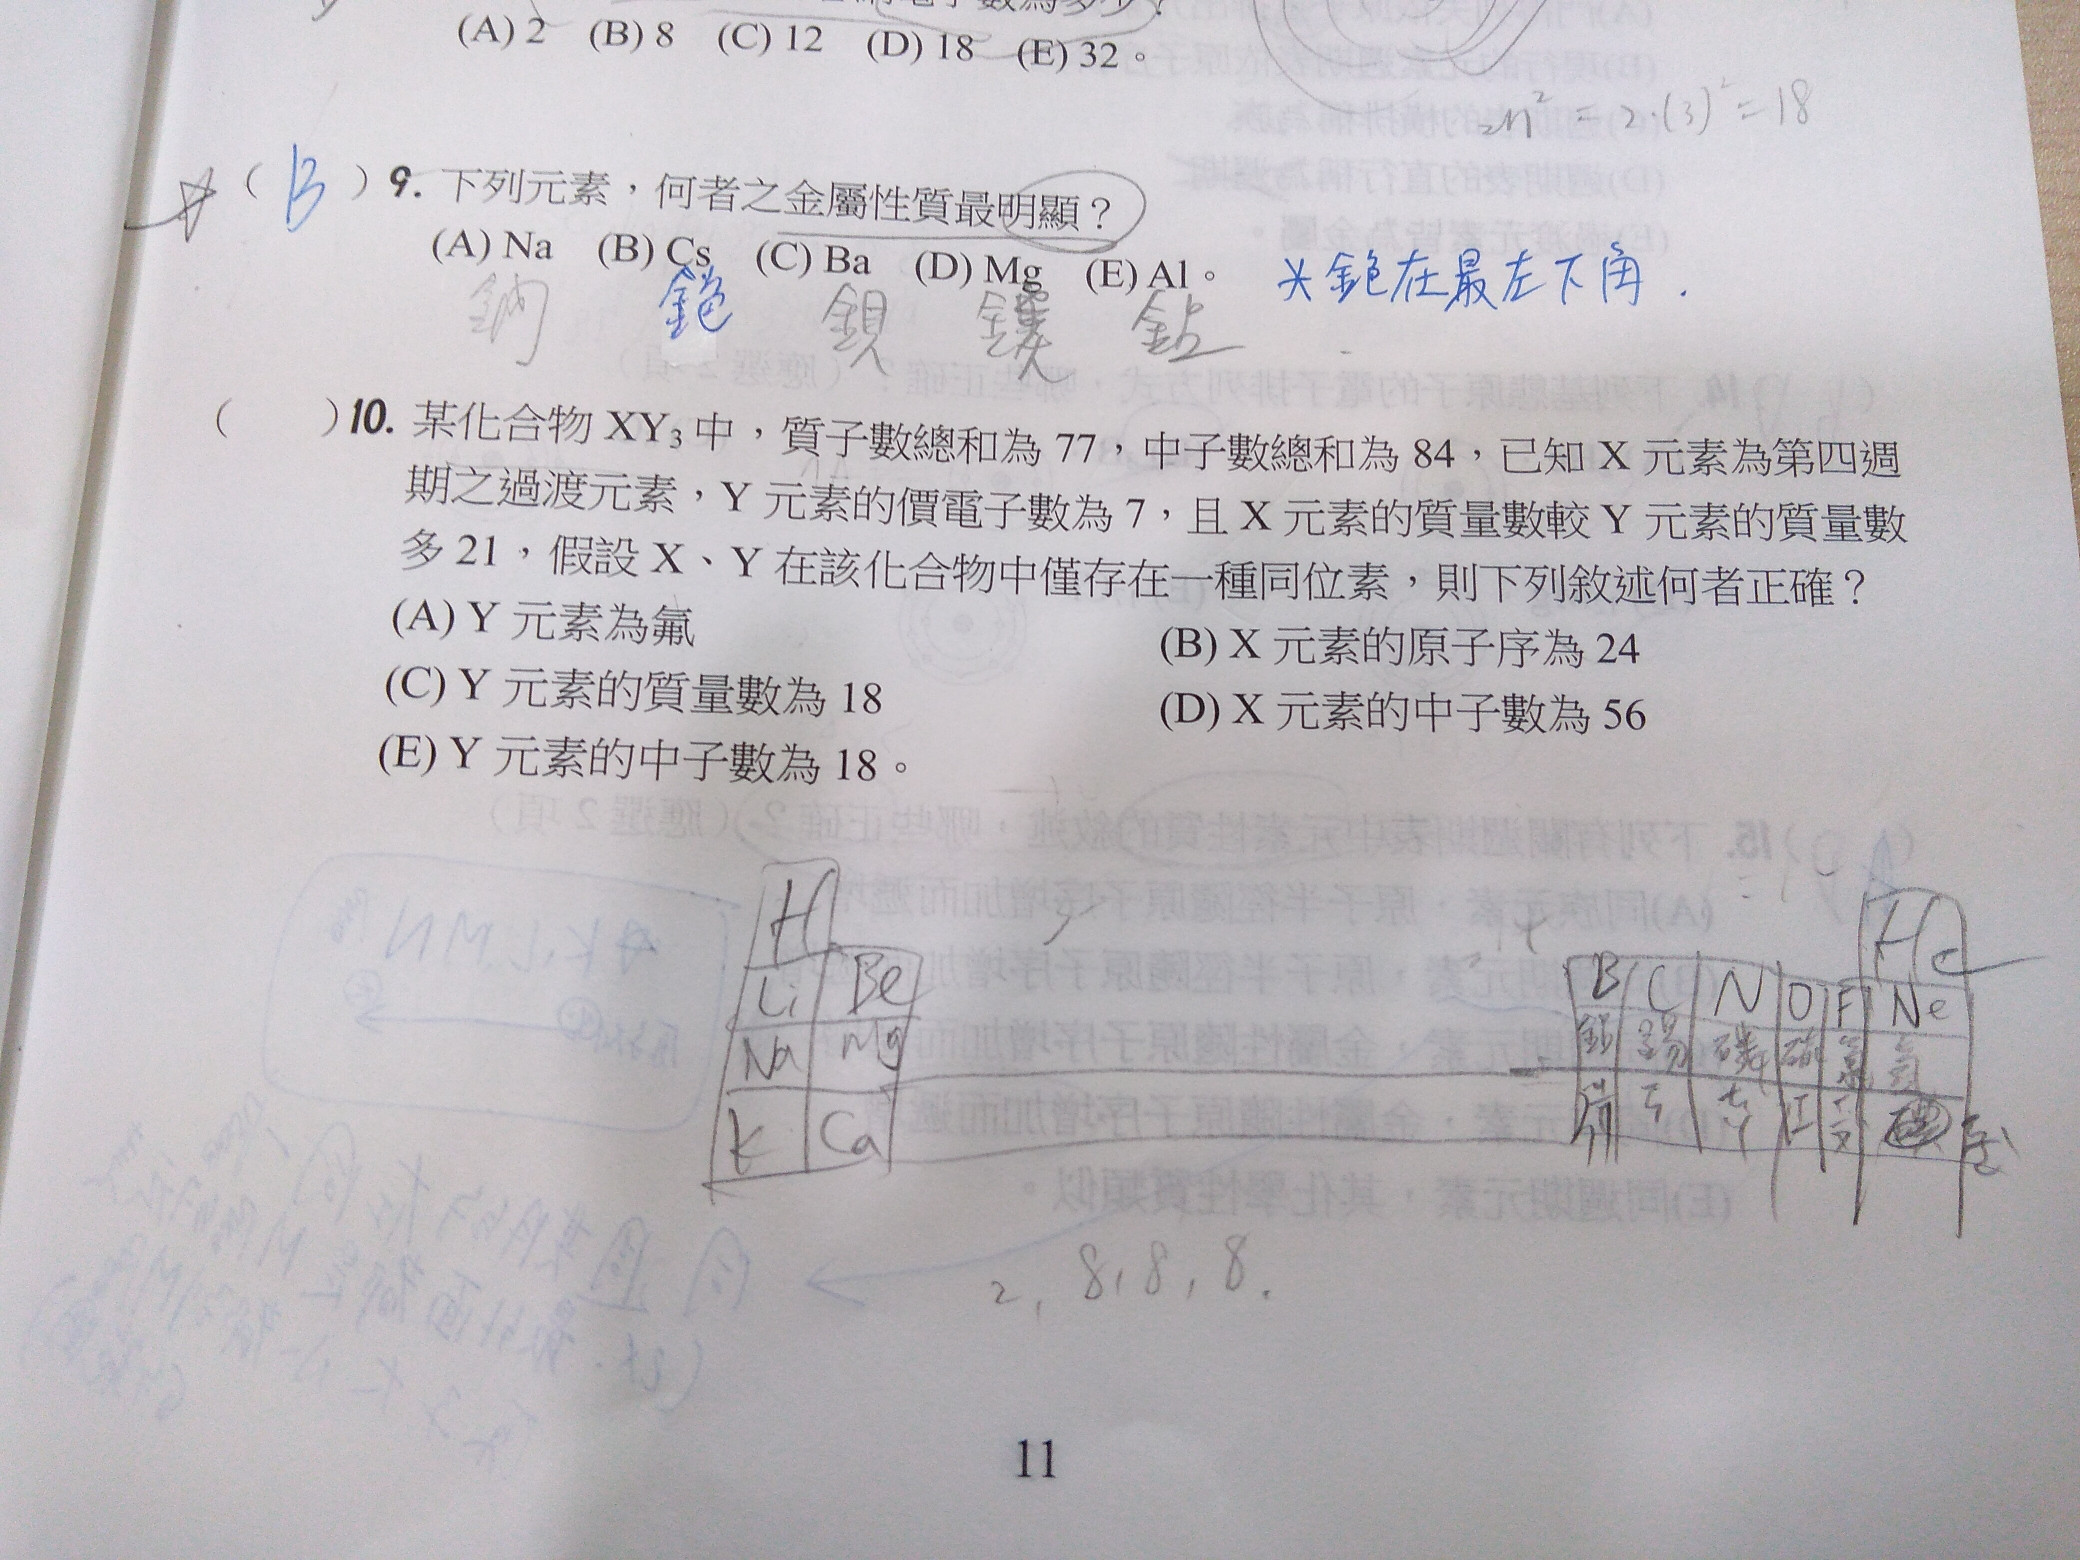 (A) 2 (B) 8 (C) 12 (D) 18 (E) 32。
2n² = 2·(3)² = 18
( B ) 9. 下列元素，何者之金屬性質最明顯？
(A) Na (B) Cs (C) Ba (D) Mg (E) Al。
鈉 銫 鋇 鎂
銫在最左下角.
( ) 10. 某化合物 XY₃ 中，質子數總和為 77，中子數總和為 84，已知 X 元素為第四週
期之過渡元素，Y 元素的價電子數為 7，且 X 元素的質量數較 Y 元素的質量數
多 21，假設 X、Y 在該化合物中僅存在一種同位素，則下列敘述何者正確？
(A) Y 元素為氟 (B) X 元素的原子序為 24
(C) Y 元素的質量數為 18 (D) X 元素的中子數為 56
(E) Y 元素的中子數為 18。
H He
Li Be B C N O F Ne
Na Mg
K Ca
2, 8, 8, 8.
11